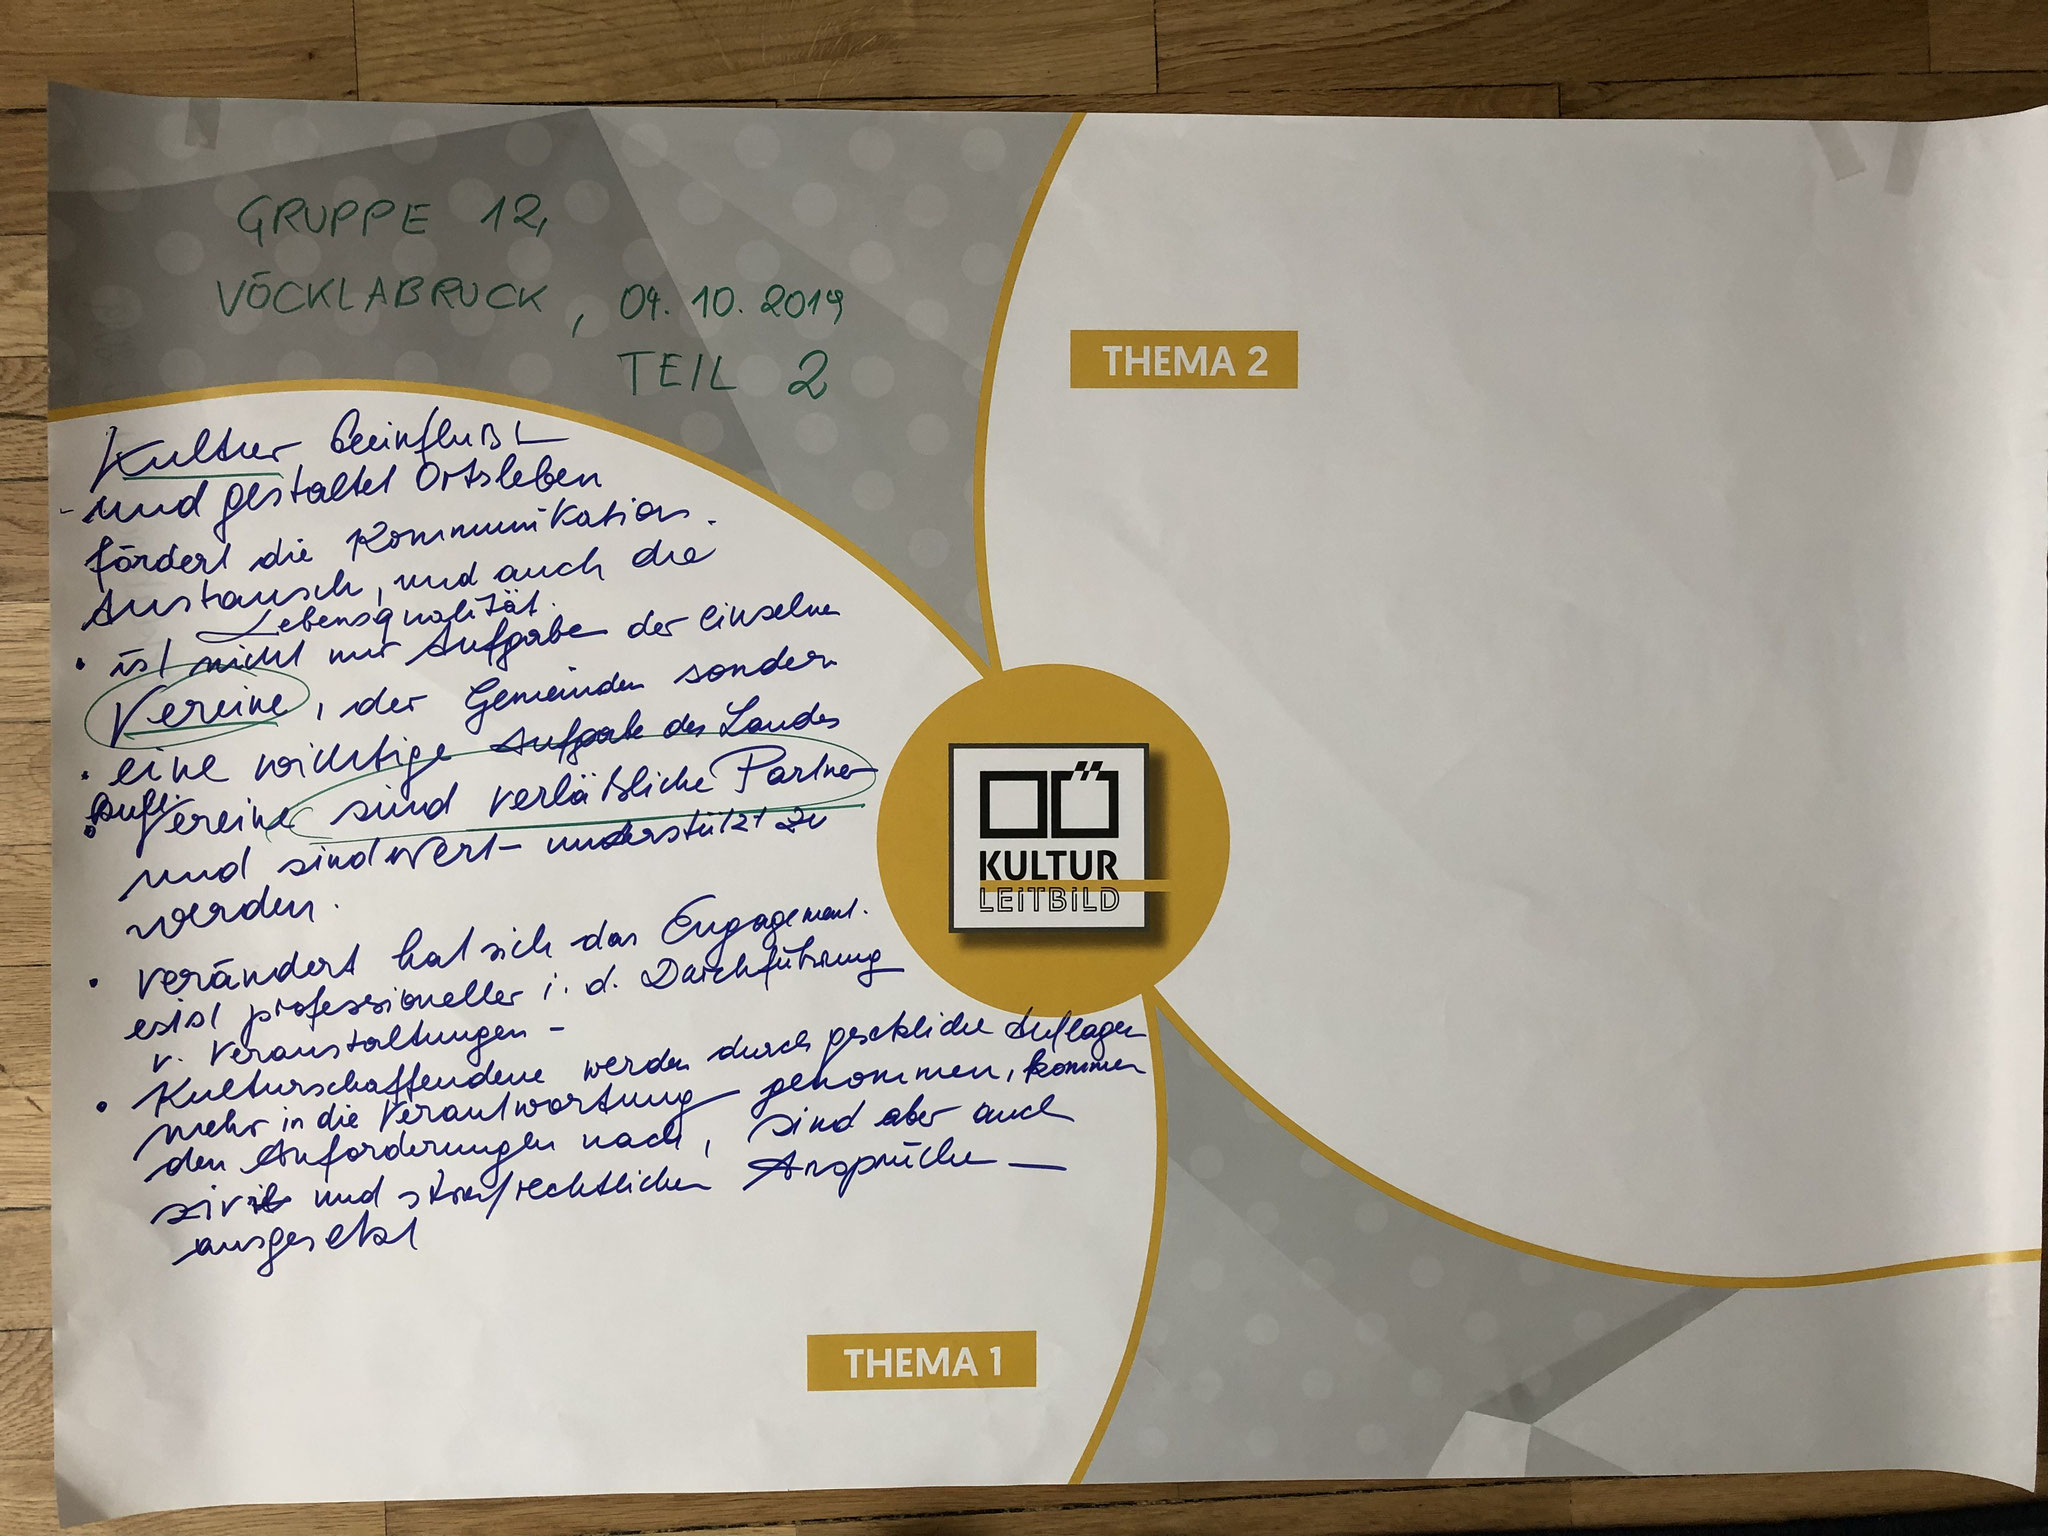 GRUPPE 12,
VÖCKLABRUCK, 09.10.2019
TEIL 2
Kultur beeinflußt
und gestaltet Ortsleben
fördert die Kommunikation.
Austausch, und auch die
Lebensqualität.
• ist nicht nur Aufgabe der einzelnen
Vereine, der Gemeinden sondern
• eine wichtige Aufgabe des Landes
• Vereine sind verläßliche Partner
und sind wert - unterstützt zu
werden.
• verändert hat sich das Engagement.
es ist professioneller i. d. Durchführung
v. Veranstaltungen -
• Kulturschaffendene werden durch gesetzliche Auflagen
mehr in die Verantwortung genommen, kommen
den Anforderungen nach, sind aber auch
zivil und strafrechtlichen Ansprüchen
ausgesetzt
THEMA 2
OÖ
KULTUR
LEITBILD
THEMA 1